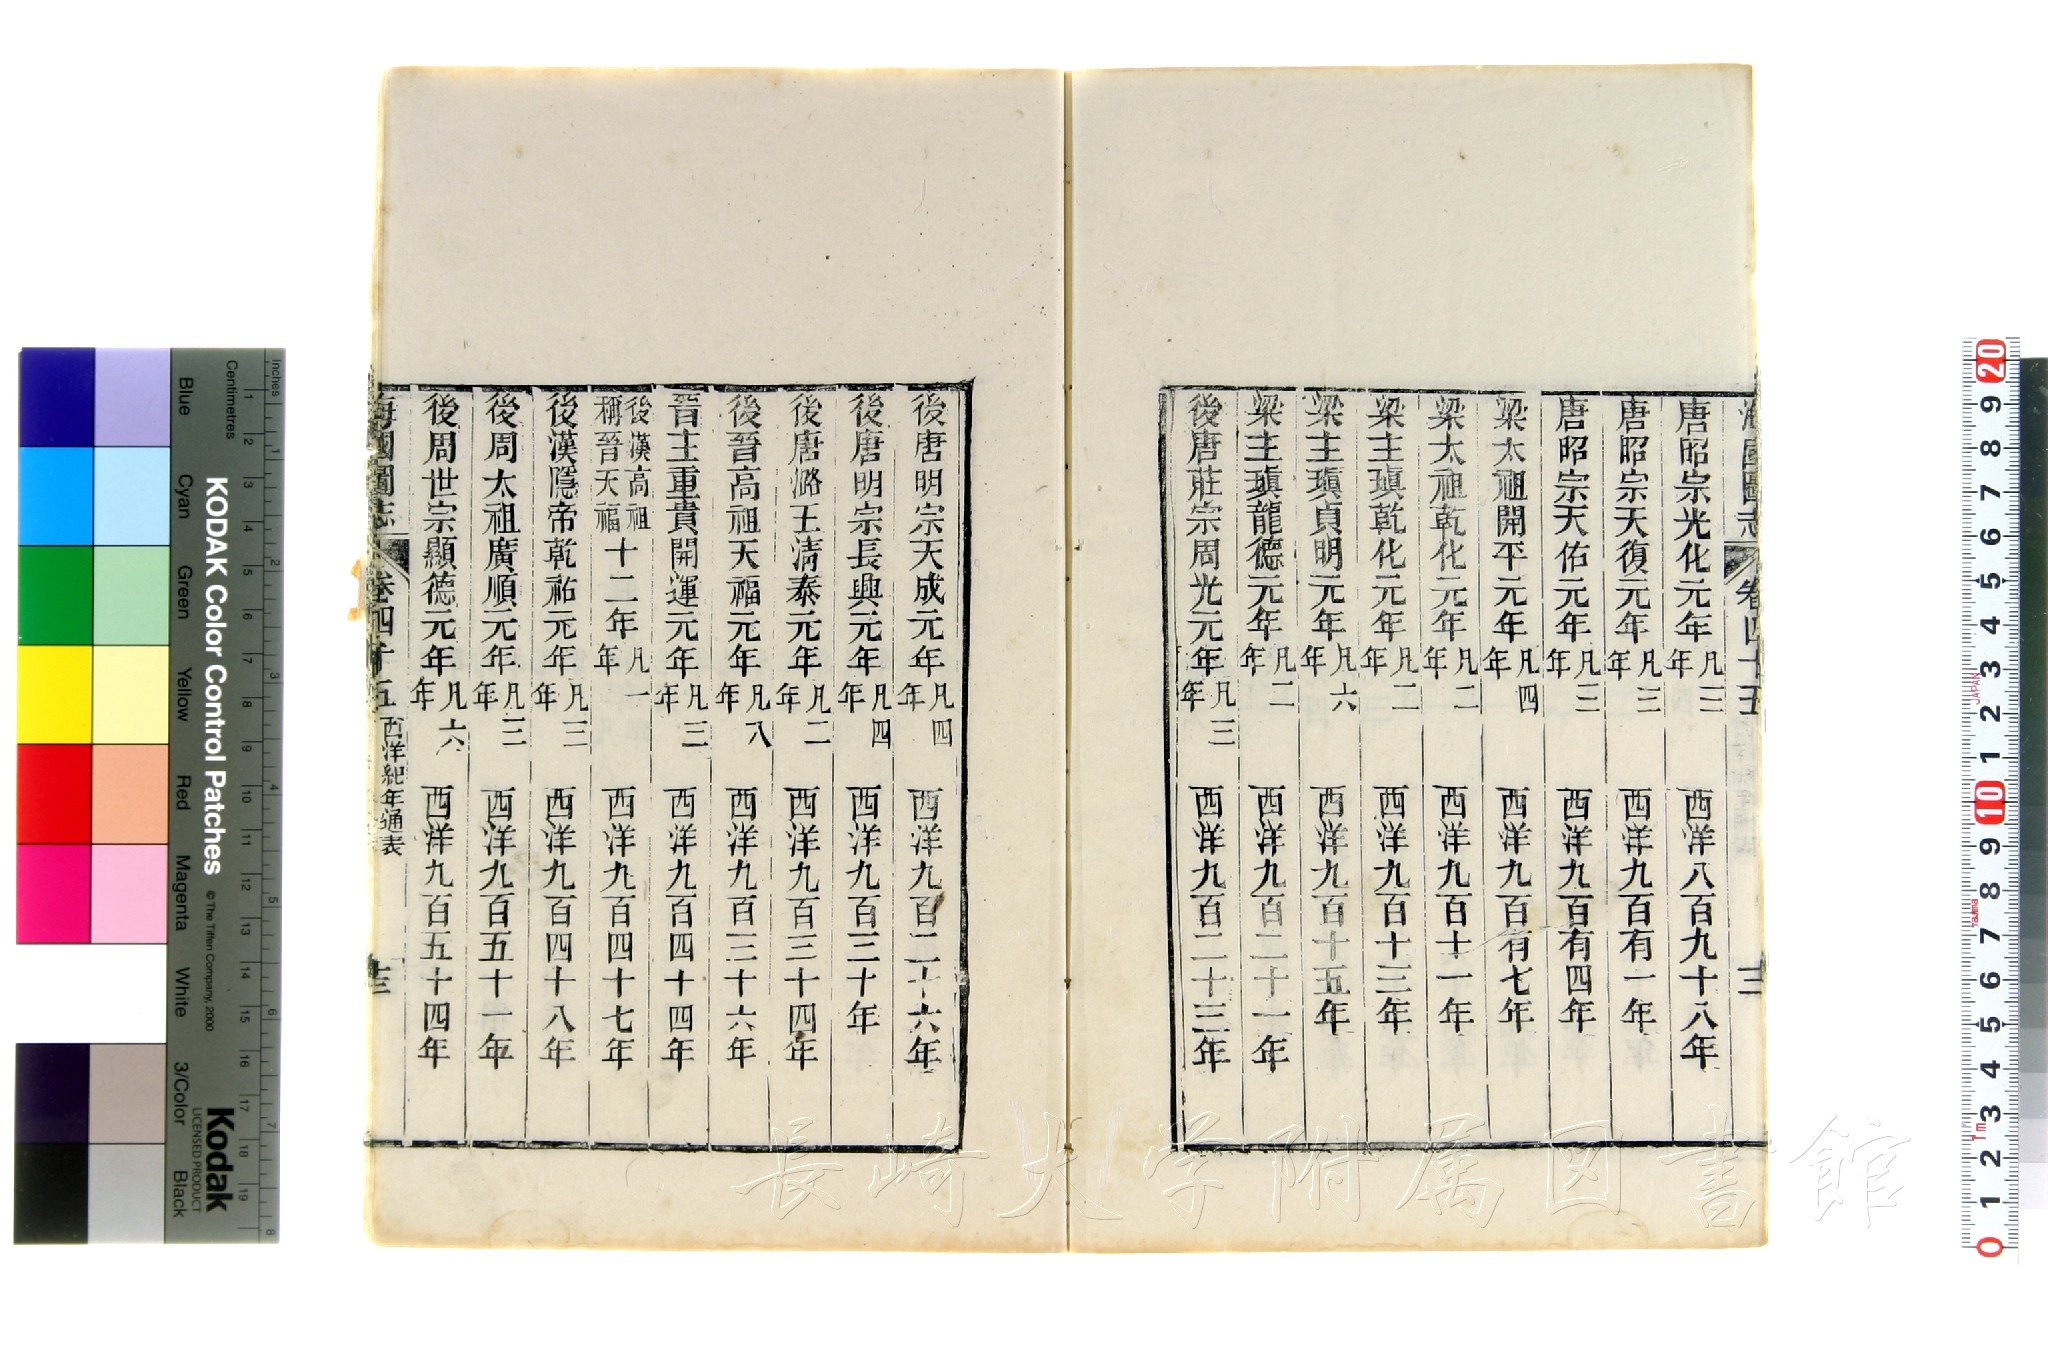 海國圖志 卷四十五 十二
唐昭宗光化元年凡三年 西洋八百九十八年
唐昭宗天復元年凡三年 西洋九百有一年
唐昭宗天佑元年凡三年 西洋九百有四年
梁太祖開平元年凡四年 西洋九百有七年
梁太祖乾化元年凡二年 西洋九百十一年
梁主瑱乾化元年凡二年 西洋九百十三年
梁主瑱貞明元年凡六年 西洋九百十五年
梁主瑱龍德元年凡二年 西洋九百二十一年
後唐莊宗周光元年凡三年 西洋九百二十三年
後唐明宗天成元年凡四年 西洋九百二十六年
後唐明宗長興元年凡四年 西洋九百三十年
後唐潞王清泰元年凡二年 西洋九百三十四年
後晉高祖天福元年凡八年 西洋九百三十六年
晉主重貴開運元年凡三年 西洋九百四十四年
後漢高祖稱晉天福十二年凡一年 西洋九百四十七年
後漢隱帝乾祐元年凡三年 西洋九百四十八年
後周太祖廣順元年凡三年 西洋九百五十一年
後周世宗顯德元年凡六年 西洋九百五十四年
海國圖志 卷四十五 西洋紀年通表 十三
長崎大学附属図書館
KODAK Color Control Patches
© The Tiffen Company, 2000
Kodak
LICENSED PRODUCT
Inches
Centimetres
Blue
Cyan
Green
Yellow
Red
Magenta
White
3/Color
Black
1 2 3 4 5 6 7 8
1 2 3 4 5 6 7 8 9 10 11 12 13 14 15 16 17 18 19
20 9 8 7 6 5 4 3 2 1 10 9 8 7 6 5 4 3 2 1 0
JAPAN
Tajima
1m